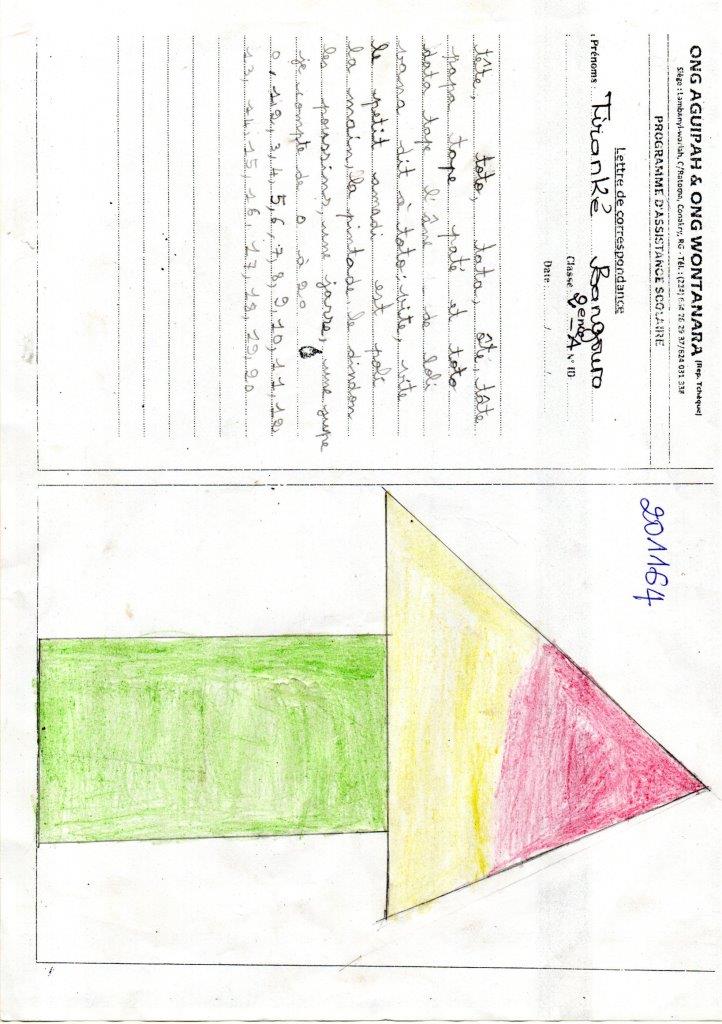 ONG AGUIPAH & ONG WONTANARA (Rep. Tchèque)
Siège : Lambanyi-wariah, C/Ratoma, Conakry, RG - Tél. :
PROGRAMME D'ASSISTANCE SCOLAIRE
Lettre de correspondance
Prénoms : Tiranké Bangoura
Classe 2eme - A N° ID
Date / /
tête, toto, tata, ôte, tâte
papa tape paté et toto
tata tape l'âne de loli
vana dit à toto: vite, vite
le petit amadi est poli
la main, la pintade le dindon
les poussins, une jarre, une jupe
je compte de 0 à 20
0, 1, 2, 3, 4, 5, 6, 7, 8, 9, 10, 11, 12
13, 14, 15, 16, 17, 18, 19, 20
201164